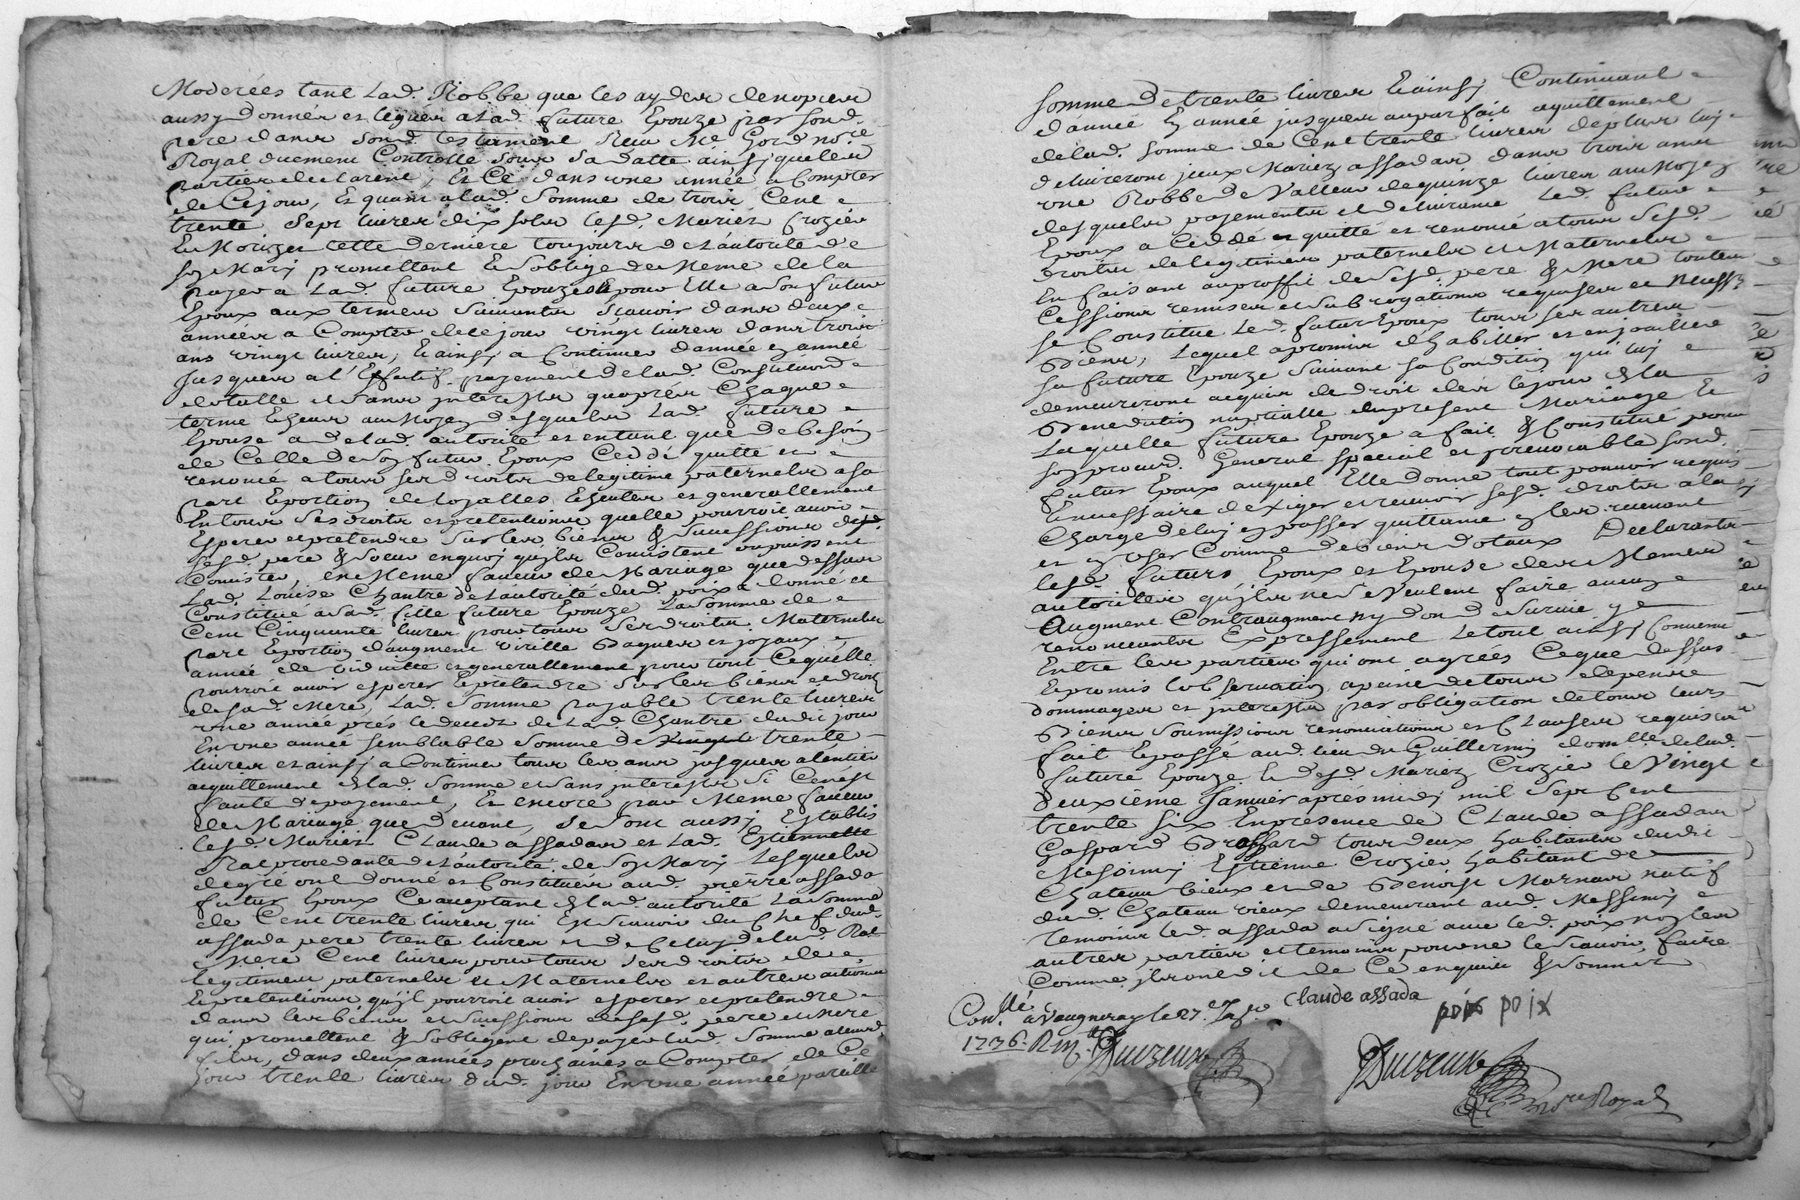 Moderées tant Lad. Robbe que les aydes de nopces
aussy donnés et legués a Lad. future Epouze par sond.
pere dans sond. testament Receu Me. Gord no.re
Royal duement Controllé sous sa datte ainsy que les
parties declarent, Et Ce dans une année a Compter
de Ce jour, Et quant a lad. Somme de trois Cent
trente Sept livres dix sols lesd. Mariez Crozier
Et Morizet cette derniere toujours de L'autorité de
son Mary promettent Et s'oblige de Meme de la
payer a Lad. future Epouze ou pour Elle a son futur
Epoux aux termes Suivants scavoir dans deux
années a Compter de ce jour vingt livres dans trois
ans vingt livres, Et ainsy a Continuer d'année en année
Jusques a l'Effectif payement de lad. Constitution
dotalle et sans interests qu'apres Chaque
terme Echeu au Moyen desquels Lad. future
Epouse a de lad. autorité et entant que de besoin
de Celle de son futur Epoux Ceddé quitté et
renoncé a tous ses droits de legitime paternels a sa
part Et portion de loyalles Echutes et generallement
En tous ses droits et pretentions quelle pourroit avoir
Esperer et pretendre sur les biens & Successions de
sesd. pere & soeur en quoy qu'ils Consistent ou puissent
Consister, en Meme faveur de Mariage que dessus
Lad. Louise Chantre de L'autorité dud. poix a donné et
Constitué a Sad. fille future Epouze La somme de
Cent Cinquante livres pour tous ses droits Maternels
part Et portion d'augment virille Bagues et joyaux
année de viduité et generallement pour tout Ce qu'elle
pourroit avoir esperer Et pretendre sur les biens et droits
de sad. Mere, Lad. Somme payable trente livres
une année prés le deces de Lad. Chantre dudit jour
En une année semblable Somme de trente
livres et ainsy a Continuer tous les ans jusques a l'entier
acquittement de lad. Somme et sans interests si Ce n'est
faute de payement, Et encore par Meme faveur
de Mariage que devant, Se sont aussy Establis
lesd. Mariez Claude assadas et Lad. Estiennette
Rat procedante de L'autorité de son Mary Lesquels
de gré ont donné et Constitué aud. pierre assada
futur Epoux Ce acceptant de lad. autorité La somme
de Cent trente livres, qui Est scavoir du Chef dud.
assada pere trente livres et de Celuy de lad. Rat
Mere Cent livres pour tous ses droits de
legitimes paternels et Maternels et autres actions
Et pretentions qu'il pourroit avoir esperer et pretendre
dans les biens et successions de sesd. pere et mere
qui promettent & s'obligent de payer lad. Somme a leurd.
fils, dans deux années prochaines a Compter de Ce
jour trente livres dud. jour En une année pareille
Somme de trente livres Et ainsy Continuant
d'année En année jusques au parfait aquittement
de lad. somme de Cent trente livres de plus luy
delivreront jceux Mariez assadas dans trois ans
une Robbe de Valleur de quinze livres au Moyen
desquels payements et delivrance Led. futur
Epoux a Ceddé et quitté et renoncé a tous sesd.
droits de legitimes paternels et Maternels
En faisant au proffit de sesd. pere & Mere toutes
Cessions remises et subrogations requises et Necess.
se Constitue Led. futur Epoux tous ses autres
Biens, Lequel a promis d'habiller et enjoailler
sa future Epouze suivant sa Condition qui luy
demeureront acquis de droit des le jour de la
Benediction nuptialle du present Mariage Et
Laquelle future Epouze a fait & Constitué pour
son procur. General special et jrrevocable sond.
futur Epoux auquel Elle donne tout pouvoir requis
Et necessaire d'exiger et recevoir sesd. droits a la
Charge de luy en passer quittance en les recevant
et en user Comme de biens dotaux Declarants
lesd. futurs Epoux et Epouse des Memes
autorités qu'ils ne se veulent faire aucun
Augment Contraugment ny don de survie y
renonceants Expressement Le tout ainsy Convenu
Entre les parties qui ont agrées Ce que dessus
Et promis l'observation a peine de tous depens
dommages et jnterests par obligation de tous leurs
Biens soumissions renonciations et Clauses requises
fait Et passé aud. lieu du Guillermin domlle. de lad.
future Epouze Et desd. Mariez Crozier le Vingt
deuxième Janvier aprés midy mil Sept Cent
trente six En presence de Claude assadas
Gaspard Brossard tous deux habitants dudit
Messimy Estienne Crozier habitant de
Chateau vieux et de Benoist Marnas natif
dud. Chateau vieux demeurant aud. Messimy
temoins led. assada a signé avec led. poix non les
autres parties et temoins pour ne le scavoir faire
Comme ils ont dit de Ce enquis & sommés
Claude assada
poix poix
Con.llé a Vaugneray le 27.e Janv.
1736.
Duizeux
Duizeux
no.re Royal